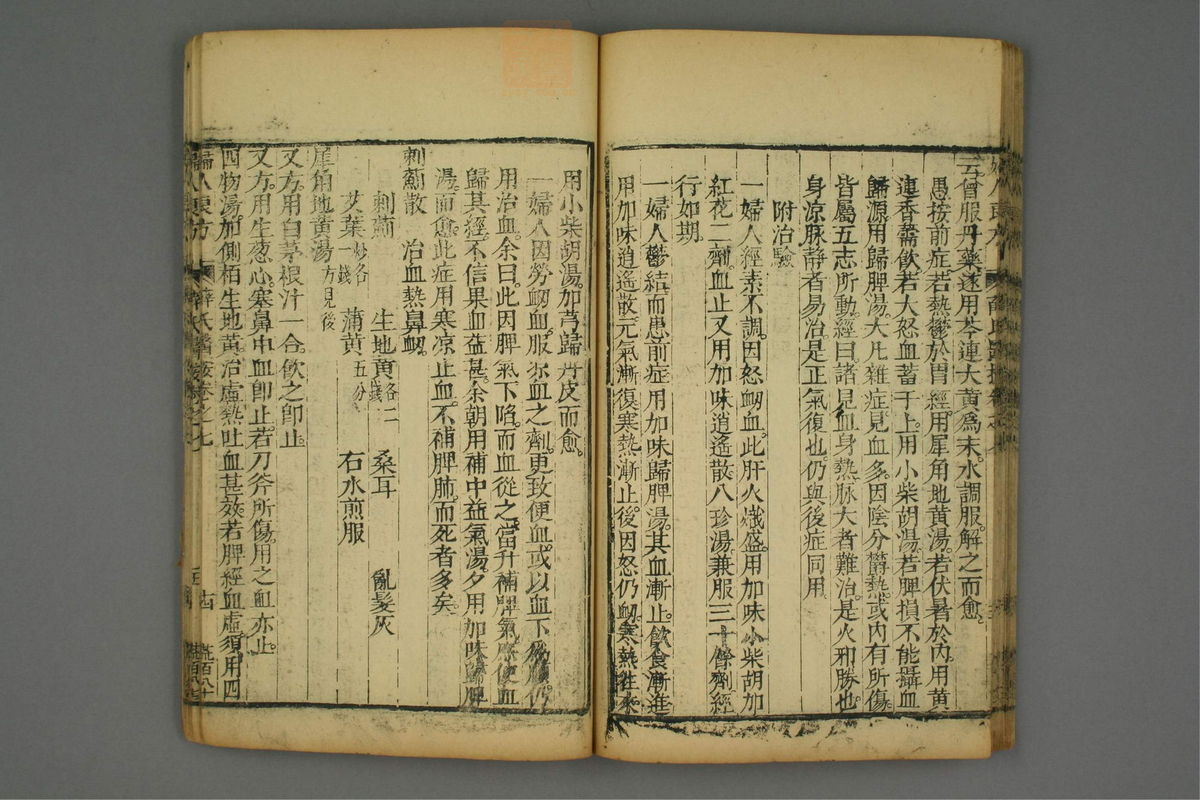 云曾服丹藥遂用芩連大黃爲末水調服解之而愈
愚按前症若熱鬱於胃經用犀角地黃湯若伏暑於內用黃
連香薷飲若大怒血蓄于上用小柴胡湯若脾損不能攝血
歸源用歸脾湯大凡雜症見血多因陰分鬱熱或內有所傷
皆屬五志所動經曰諸見血身熱脉大者難治是火邪勝也
身凉脉靜者易治是正氣復也仍與後症同用
附治驗
一婦人經素不調因怒衂血此肝火熾盛用加味小柴胡加
紅花二劑血止又用加味逍遙散八珍湯兼服三十餘劑經
行如期
一婦人鬱結而患前症用加味歸脾湯其血漸止飲食漸進
用加味逍遙散元氣漸復寒熱漸止後因怒仍衂寒熱往來
用小柴胡湯加芎歸丹皮而愈
一婦人因勞衂血服凉血之劑更致便血或以血下爲順仍
用治血余曰此因脾氣下陷而血從之當升補脾氣庶使血
歸其經不信果血益甚余朝用補中益氣湯夕用加味歸脾
湯而愈此症用寒凉止血不補脾肺而死者多矣
刺薊散 治血熱鼻衂
刺薊 生地黃各二錢 桑耳 亂髮灰
艾葉炒各一錢 蒲黃五分 右水煎服
犀角地黃湯方見後
又方用白茅根汁一合飲之卽止
又方用生葱心塞鼻中血卽止若刀斧所傷用之血亦止
四物湯加側栢生地黃治虛熱吐血甚效若脾經血虛須用四
婦人良方 薛氏醫按卷之七